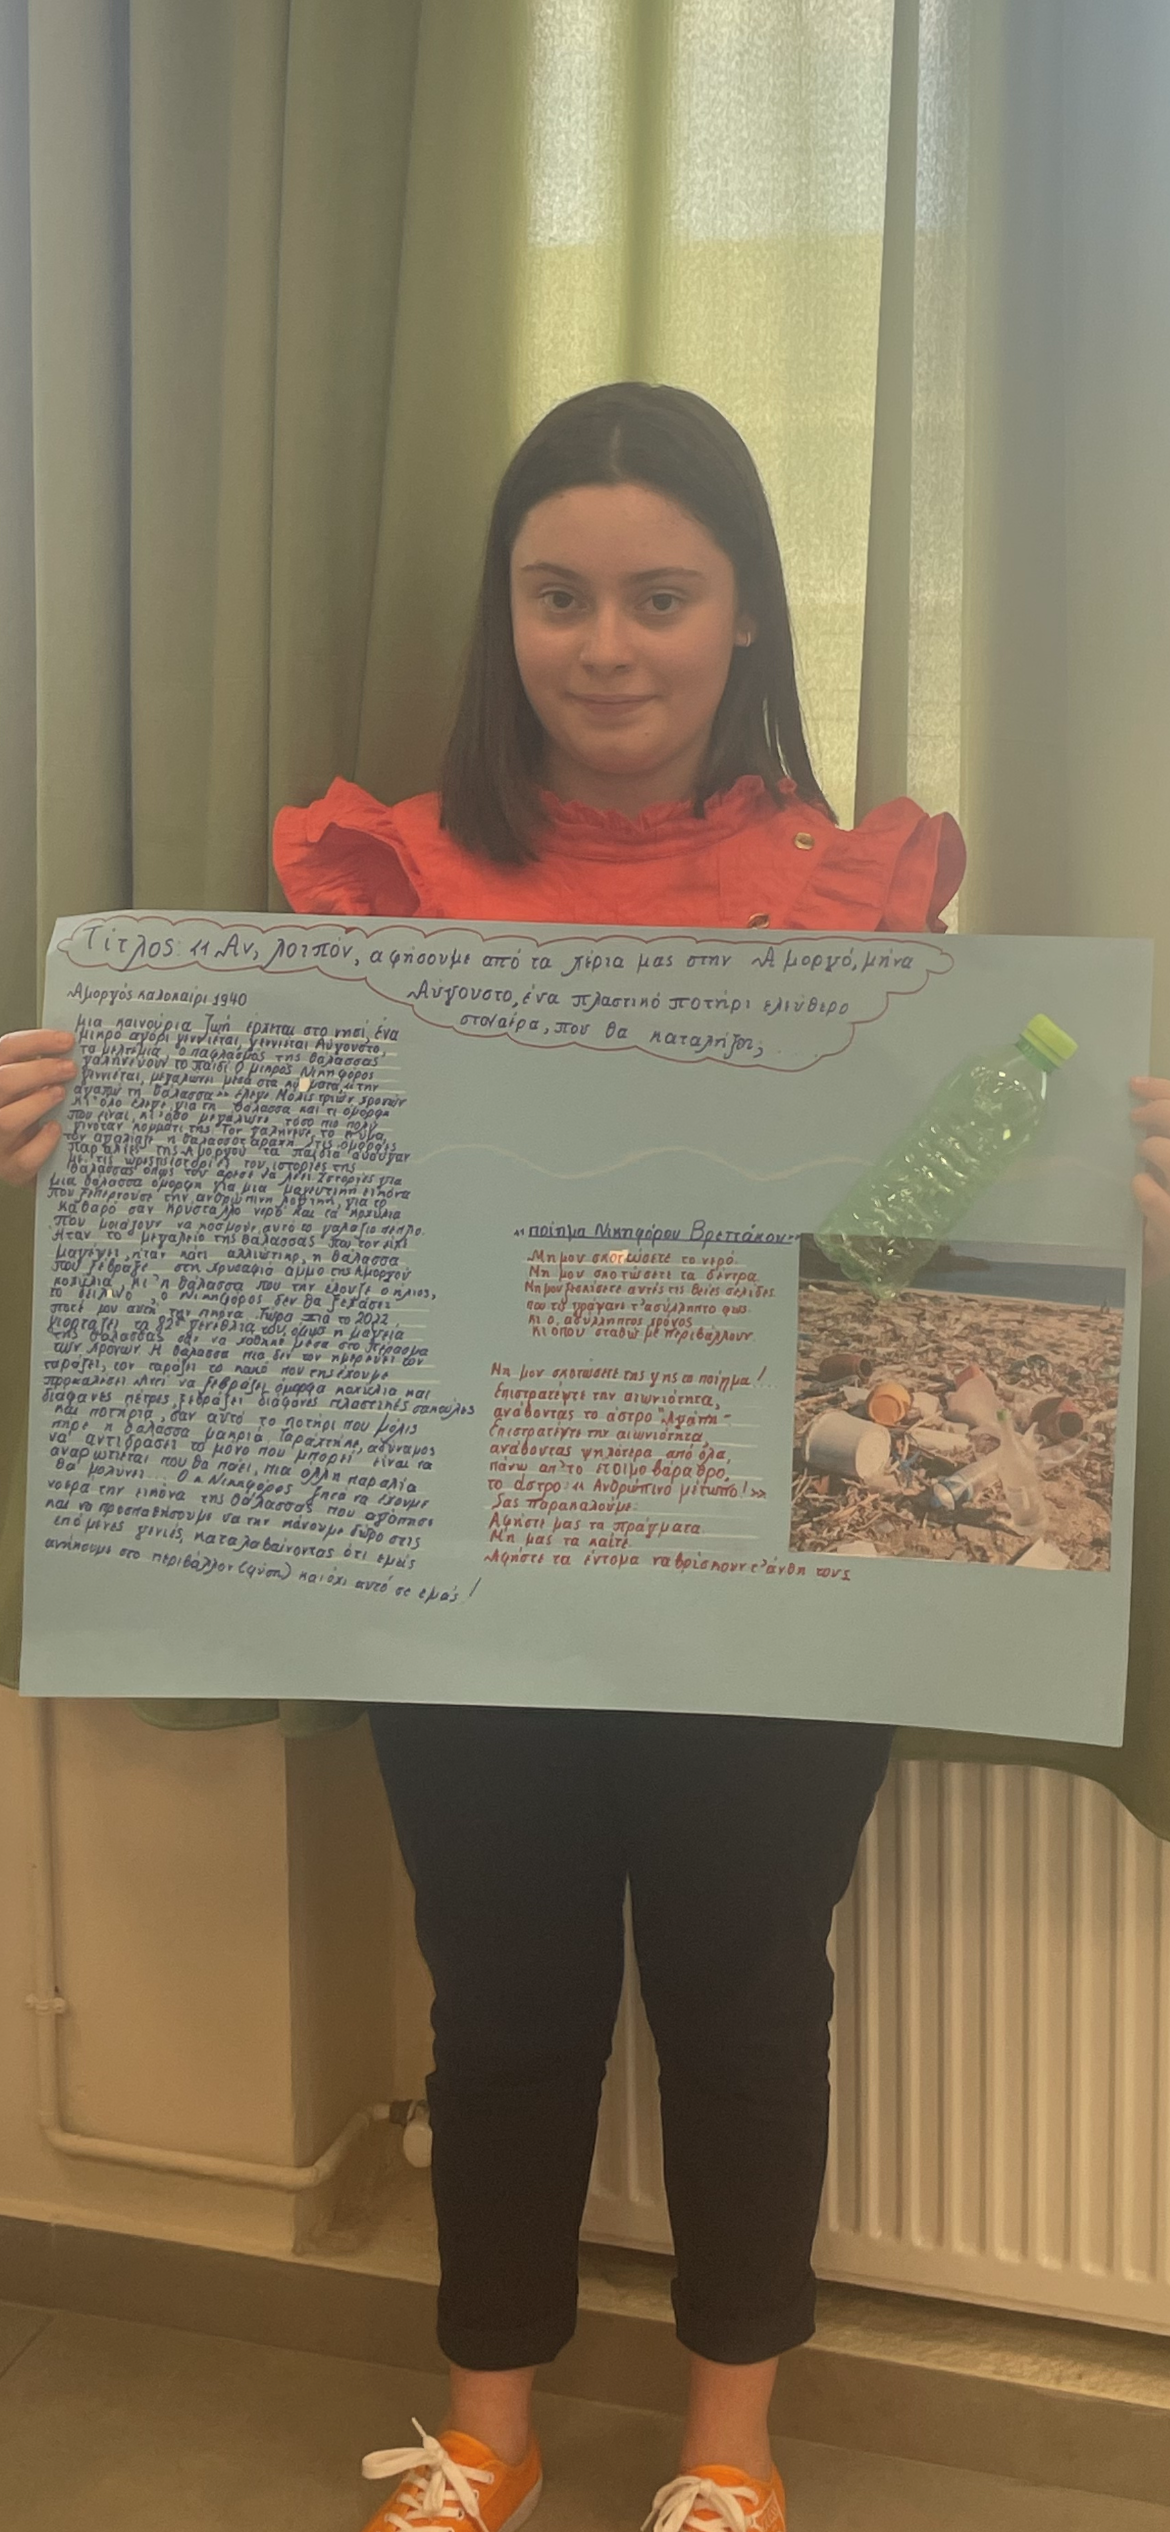 Τίτλος: "Αν, λοιπόν, αφήσουμε από τα χέρια μας στην Αμοργό, μήνα
Αύγουστο, ένα πλαστικό ποτήρι ελεύθερο
στον αέρα, που θα καταλήξει;
Αμοργός καλοκαίρι 1940
Μια καινούρια ζωή έρχεται στο νησί, ένα
μικρό αγόρι γεννιέται, γεννιέται Αύγουστο,
τα μελτέμια, ο παφλασμός της θάλασσας
γαληνεύουν το παιδί. Ο μικρός Νικηφόρος
γεννιέται, μεγαλώνει μέσα στα κύματα, "την
αγαπώ τη θάλασσα" έλεγε. Μόλις τριών χρονών
κι όλο έλεγε για τη θάλασσα και τι όμορφη
που είναι, κι όσο μεγάλωνε τόσο πιο πολύ
γινόταν κομμάτι της. Τον γαλήνευε το κύμα,
τον αγαλίαζε η θαλασσοταραχή. Στις όμορφες
παραλίες της Αμοργού τα παιδιά άκουγαν
με τις ώρες ιστορίες του, ιστορίες της
θάλασσας όπως του άρεσε να λέει. Ιστορίες για
μια θάλασσα όμορφη για μια μαγευτική εικόνα
που ξεπερνούσε την ανθρώπινη λογική, για το
καθαρό σαν κρύσταλλο νερό και τα κοχύλια
που μοιάζουν να κοσμούν αυτό το γαλάζιο πέπλο.
Ήταν το μεγαλείο της θάλασσας που τον είχε
μαγέψει, ήταν κάτι αλλιώτικο, η θάλασσα
που ξέβραζε στη χρυσαφιά άμμο της Αμοργού
κοχύλια, κι η θάλασσα που την έλουζε ο ήλιος,
το δειλινό, ο Νικηφόρος δεν θα ξεχάσει
ποτέ μου αυτή την εικόνα. Τώρα πια το 2022
γιορτάζει τα 82α γενέθλια του, όμως η μαγεία
της θάλασσας σαν να χάθηκε μέσα στο πέρασμα
των χρονών. Η θάλασσα πια δεν τον ημερεύει τον
ταράζει, τον ταράζει το κακό που της έχουμε
προκαλέσει. Αντί να ξεβράζει όμορφα κοχύλια και
διάφανες πέτρες, ξεβράζει διάφανες πλαστικές σακούλες
και ποτήρια, σαν αυτό το ποτήρι που μόλις
πήρε η θάλασσα μακριά. Ταράχτηκε, αδύναμος
να αντιδράσει το μόνο που μπορεί είναι να
αναρωτιέται που θα πάει, πια άλλη παραλία
θα μολύνει... Ο κ Νικηφόρος ζητά να έχουμε
νοερά την εικόνα της θάλασσας που αγάπησε
και να προσπαθήσουμε να την κάνουμε δώρο στις
επόμενες γενιές, καταλαβαίνοντας ότι εμείς
ανήκουμε στο περιβάλλον (φύση) και όχι αυτό σε εμάς!
"ποίημα Νικηφόρου Βρεττάκου"
Μη μου σκοτώσετε το νερό.
Μη μου σκοτώσετε τα δέντρα.
Μη μου ξεσκίσετε αυτές τις θείες σελίδες
που τις γράψανε τ'ασύλληπτο φως
κι ο, ασύλληπτος χρόνος
κι όπου σταθώ με περιβάλλουν.
Μη μου σκοτώσετε της γης το ποίημα!..
Επιστρατέψτε την αιωνιότητα,
ανάβοντας το άστρο "Αγάπη"
Επιστρατέψτε την αιωνιότητα,
ανάβοντας ψηλότερα από όλα,
πάνω απ'το έτοιμο βάραθρο,
το άστρο "Ανθρώπινο μέτωπο!"
Σας παρακαλούμε:
Αφήστε μας τα πράγματα
Μη μας τα καίτε.
Αφήστε τα έντομα να βρίσκουν τ'άνθη τους